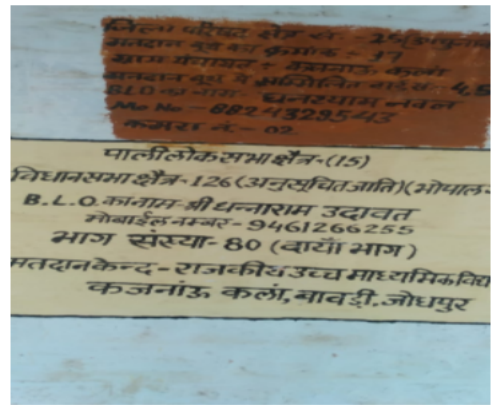 जिला परिषद क्षेत्र सं.
मतदान बूथ का क्रमांक - 17
ग्राम पंचायत - कजनाऊ कलां
मतदान बूथ में सम्मिलित वार्ड सं. - 4,5
B.L.O का नाम - घनश्याम नवल
Mo No - 8824329543
कमरा नं. - 02
पाली लोकसभा क्षैत्र-(15)
विधानसभा क्षैत्र-126(अनुसूचित जाति)(भोपाल-
B.L.O. का नाम-श्री धन्नाराम उदावत
मोबाईल नम्बर-9461266255
भाग संख्या-80 (दायाँ भाग)
मतदान केन्द-राजकीय उच्च माध्यमिक विद्य
कजनांऊ कलां, बावड़ी, जोधपुर